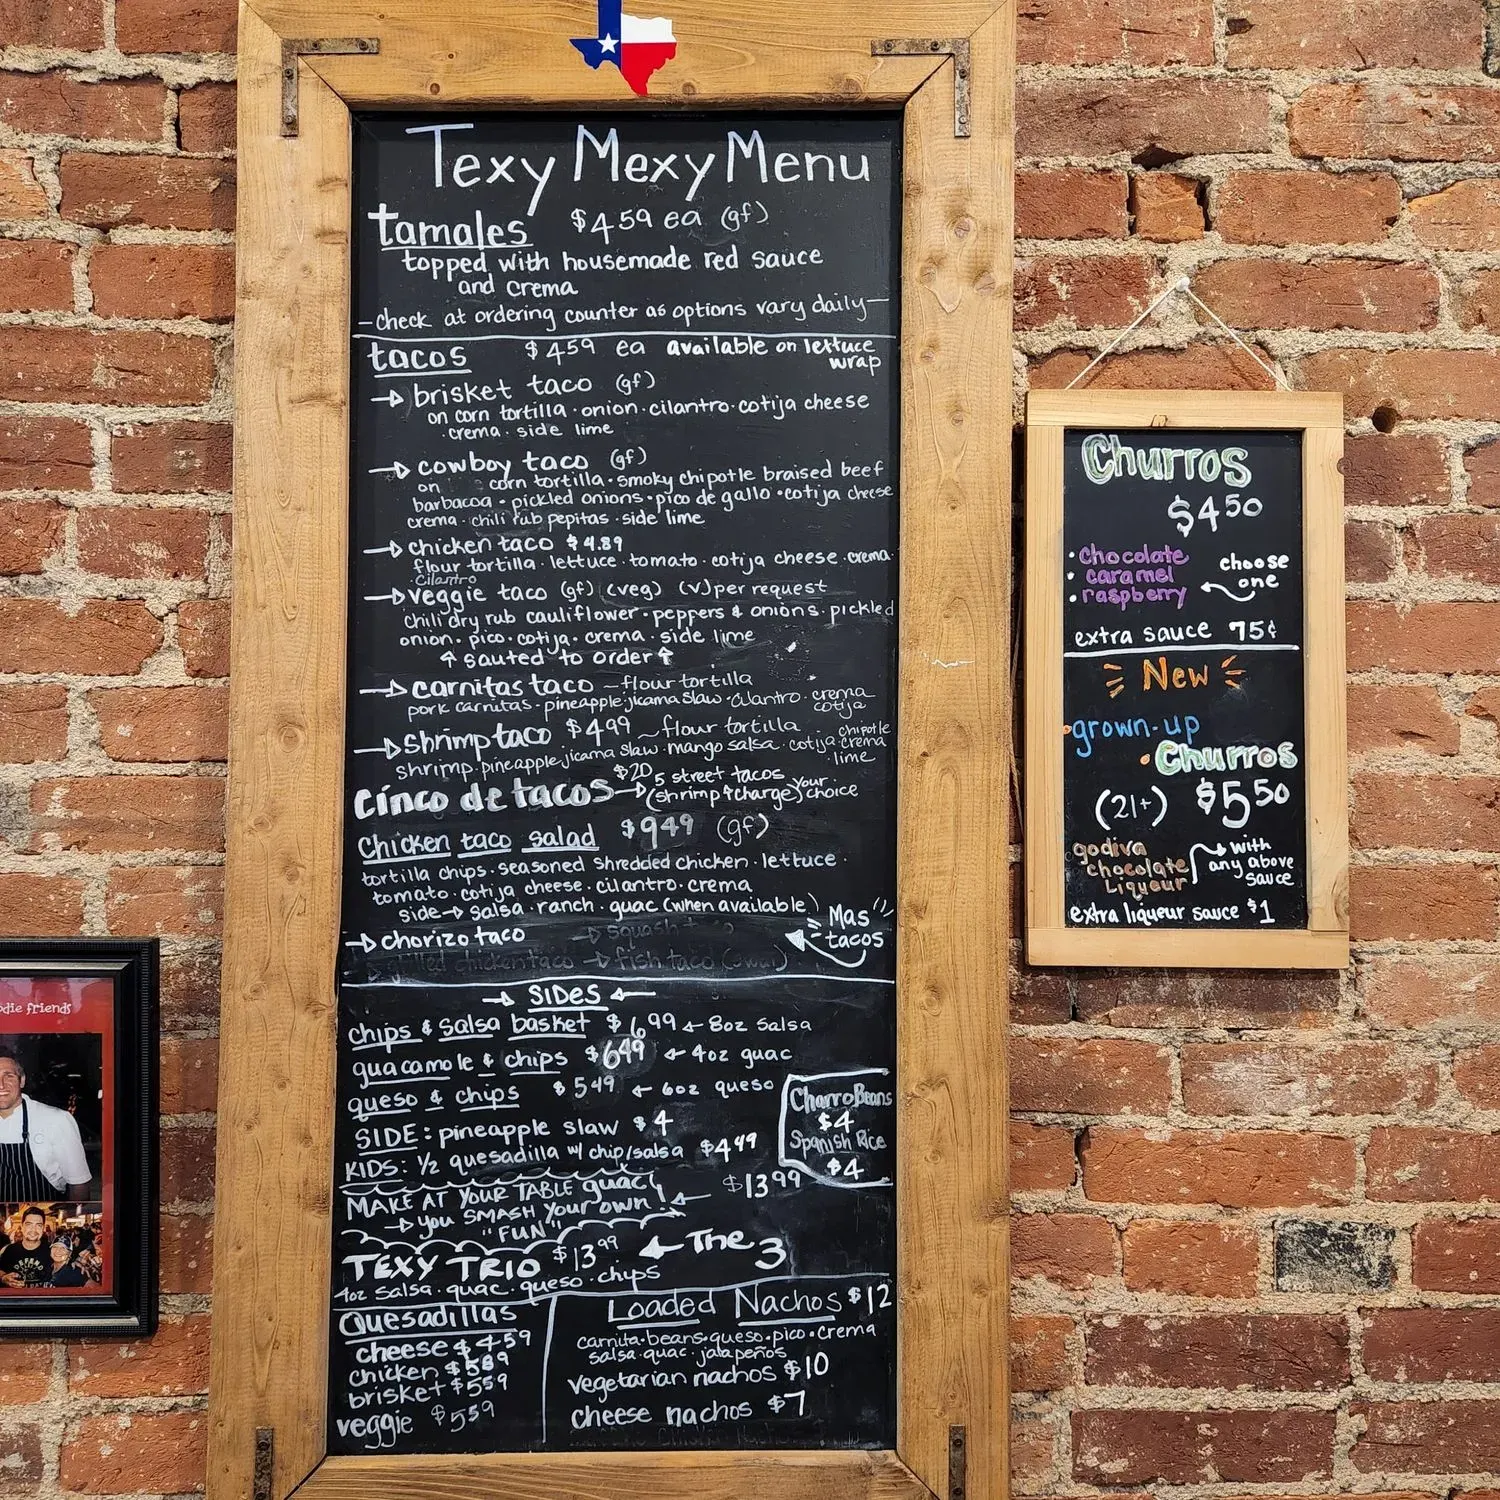 Texy Mexy Menu
tamales $4.59 ea (gf)
topped with housemade red sauce
and crema
—check at ordering counter as options vary daily—
tacos $4.59 ea available on lettuce
wrap
→ brisket taco (gf)
on corn tortilla · onion · cilantro · cotija cheese
· crema · side lime
→ cowboy taco (gf)
on corn tortilla · smoky chipotle braised beef
barbacoa · pickled onions · pico de gallo · cotija cheese
crema · chili rub pepitas · side lime
→ chicken taco $4.89
flour tortilla · lettuce · tomato · cotija cheese · crema
· cilantro
→ veggie taco (gf) (veg) (v) per request
chili dry rub cauliflower · peppers & onions · pickled
onion · pico · cotija · crema · side lime
↑ sauted to order ↑
→ carnitas taco – flour tortilla
pork carnitas · pineapple · jicama slaw · cilantro · crema
cotija
→ shrimp taco $4.99 ~ flour tortilla · chipotle
shrimp · pineapple jicama slaw · mango salsa · cotija · crema
· lime
cinco de tacos $20 → 5 street tacos your
(shrimp ↑ charge) choice
Chicken taco salad $9.49 (gf)
tortilla chips · seasoned shredded chicken · lettuce ·
tomato · cotija cheese · cilantro · crema
side → salsa · ranch · guac (when available)
→ chorizo taco → squash Mas
tacos
chicken taco → fish taco
→ SIDES ←
chips & salsa basket $6.99 ← 8oz salsa
guacamole & chips $6.49 ← 4oz guac
queso & chips $5.49 ← 6oz queso
Charro Beans
$4
Spanish Rice
$4
SIDE: pineapple slaw $4
KIDS: 1/2 quesadilla w/ chip/salsa $4.49
MAKE AT YOUR TABLE guac! ← $13.99
→ you SMASH your own!
"FUN"
TEXY TRIO $13.99 ← The 3
4oz salsa · guac · queso · chips
Quesadillas
cheese $4.59
chicken $5.89
brisket $5.59
veggie $5.59
Loaded Nachos $12
carnita · beans · queso · pico · crema
salsa · guac · jalapeños
vegetarian nachos $10
cheese nachos $7
Churros
$4.50
· chocolate
· caramel
· raspberry
choose
one
extra sauce 75¢
New
· grown-up
· Churros
(21+) $5.50
godiva
chocolate
Liqueur
→ with
any above
sauce
extra liqueur sauce $1
die friends